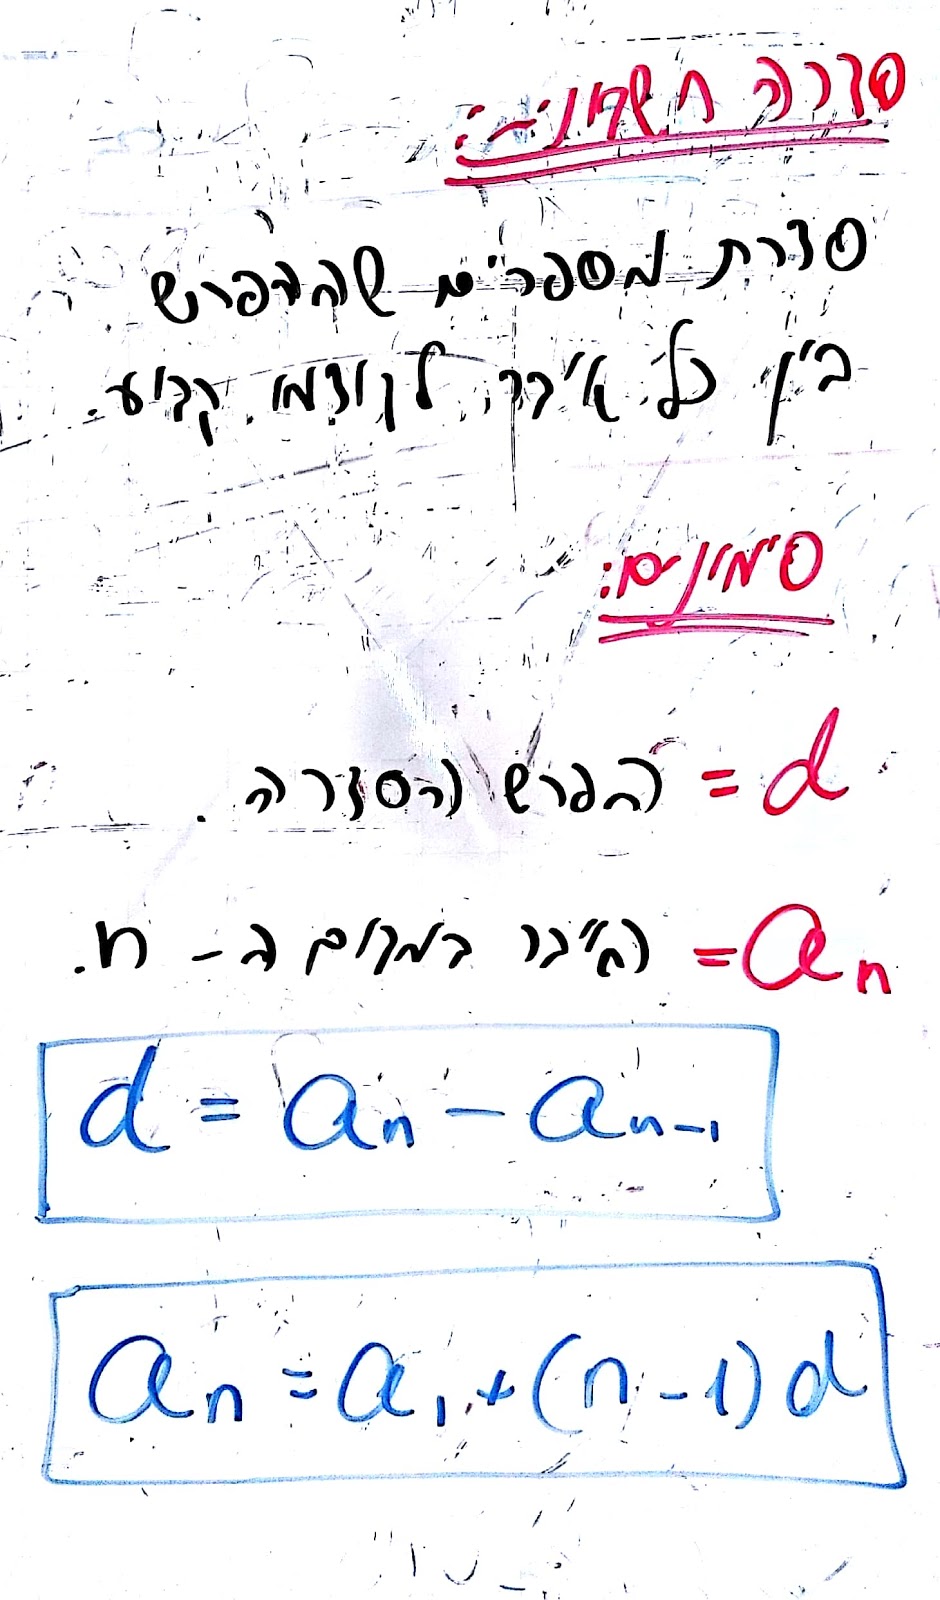 סדרה חשבונית:
סדרת מספרים שההפרש
בין כל איבר לקודמו קבוע.
סימונים:
d = הפרש הסדרה.
aₙ = האיבר במקום ה- n.
d = aₙ - aₙ₋₁
aₙ = a₁ + (n-1)d